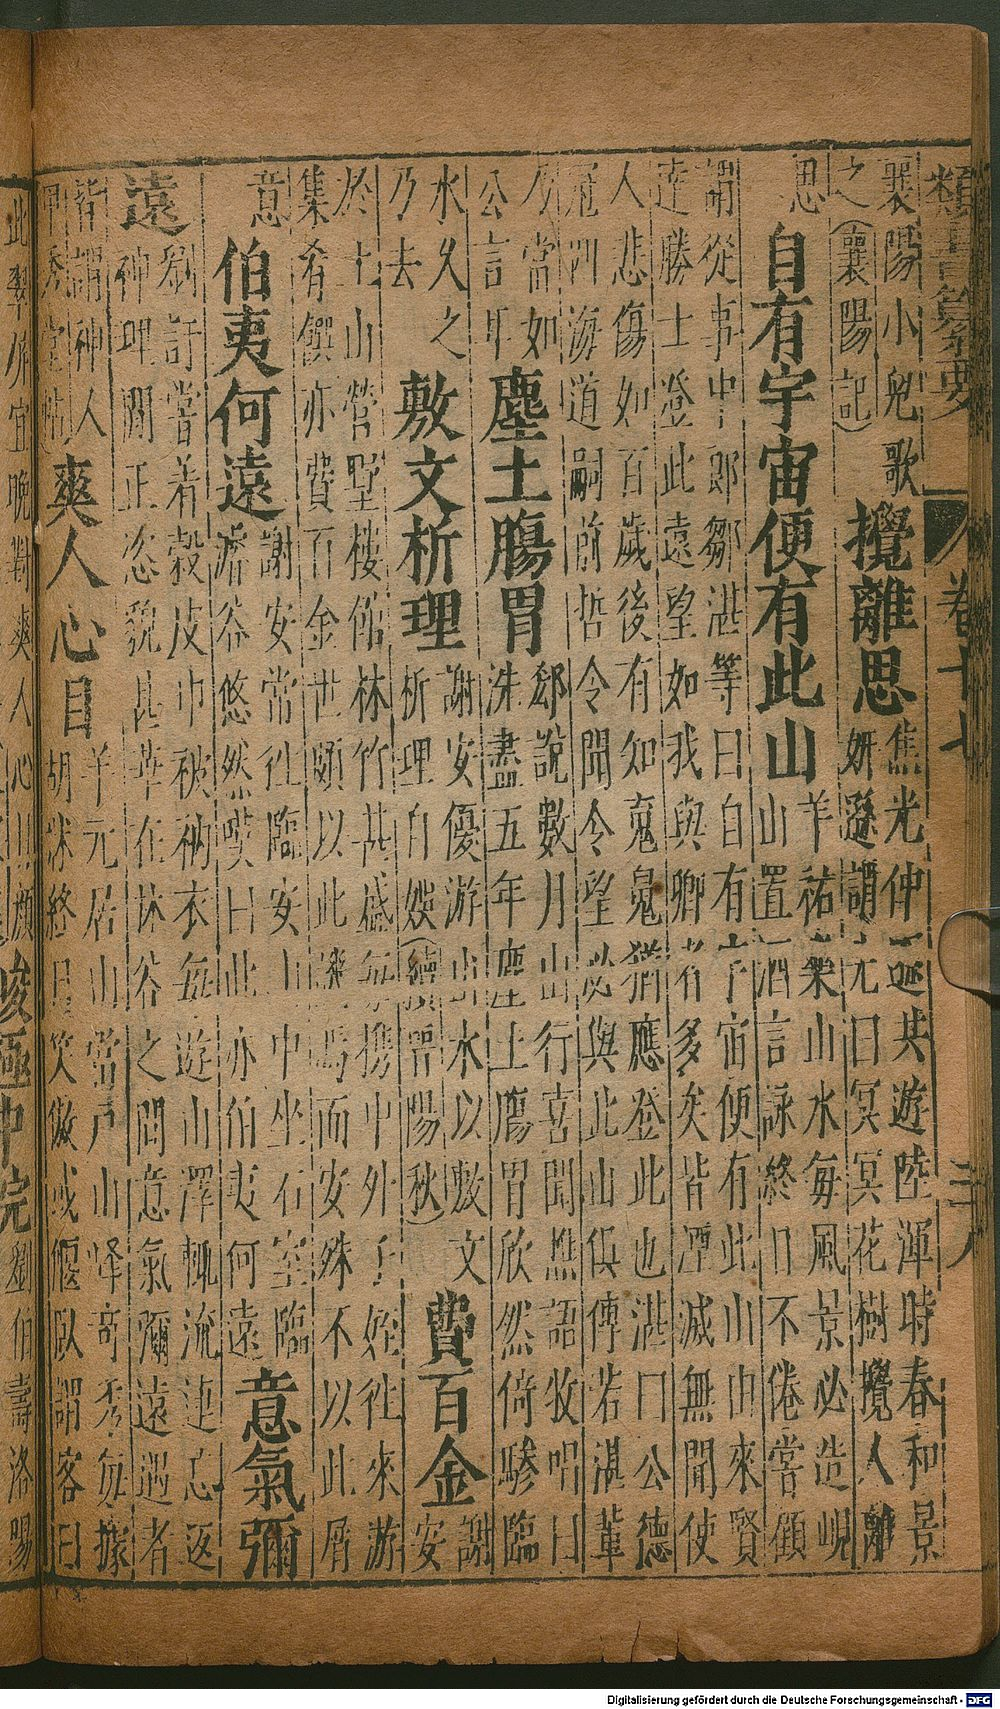 類書纂要 卷十七 三八
襄陽小兒歌
之(襄陽記)
攪離思
焦光仲延共遊陸渾時春和景
妍遜謂元曰冥冥花樹攪人離
思
自有宇宙便有此山
羊祜樂山水每風景必造峴
山置酒言詠終日不倦嘗顧
謂從事中郎鄒湛等曰自有宇宙便有此山由來賢
達勝士登此遠望如我與卿者多矣皆湮滅無聞使
人悲傷如百歲後有知魂魄猶應登此也湛曰公德
冠四海道嗣前哲令聞令望必與此山俱傳若湛輩
乃當如
公言耳
塵土腸胃
郄說數月山行喜聞樵語牧唱曰
洗盡五年塵土腸胃欣然倚驂臨
水久之
乃去
敷文析理
謝安優游山水以敷文
析理自娛(續晉陽秋)
費百金
謝
安
於土山營墅樓館林竹甚盛每携中外子姪往來游
集肴饌亦費百金世頗以此譏焉而安殊不以此屑
意
伯夷何遠
謝安常往臨安山中坐石室臨
濬谷悠然嘆曰此亦伯夷何遠
意氣彌
遠
劉訏嘗着榖皮巾被衲衣每遊山澤輒流連忘返
神理閒正恣貌甚華在林谷之間意氣彌遠遇者
皆謂神人
甲秀堂帖)
爽人心目
羊元居山當戶山峰奇秀每據
胡牀終日笑傲或偃臥謂客曰
此翠屏宜晚對爽人心
峻極中院
劉伯壽洛陽
Digitalisierung gefördert durch die Deutsche Forschungsgemeinschaft - DFG